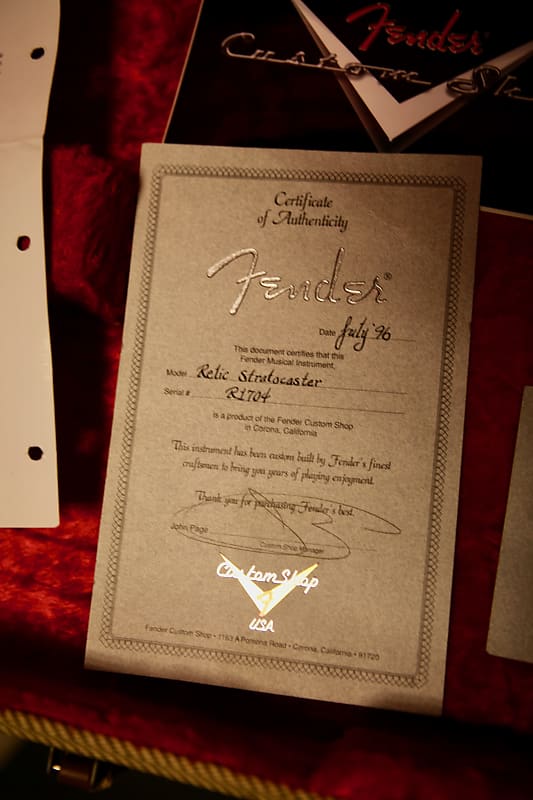 Fender
Custom Sh
Certificate
of Authenticity
Fender®
Date July '96
This document certifies that this
Fender Musical Instrument,
Model Relic Stratocaster
Serial # R1704
is a product of the Fender Custom Shop
in Corona, California
This instrument has been custom built by Fender's finest
craftsmen to bring you years of playing enjoyment.
Thank you for purchasing Fender's best.
John Page
Custom Shop Manager
Custom Shop
USA
Fender Custom Shop • 1163 A Pomona Road • Corona, California • 91720